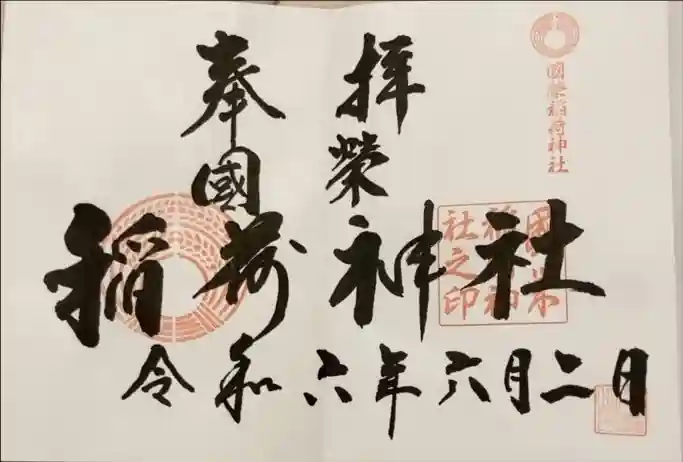 奉拝
國榮
稲荷神社
令和六年六月二日
國榮稲荷神社
國榮稲荷神社之印